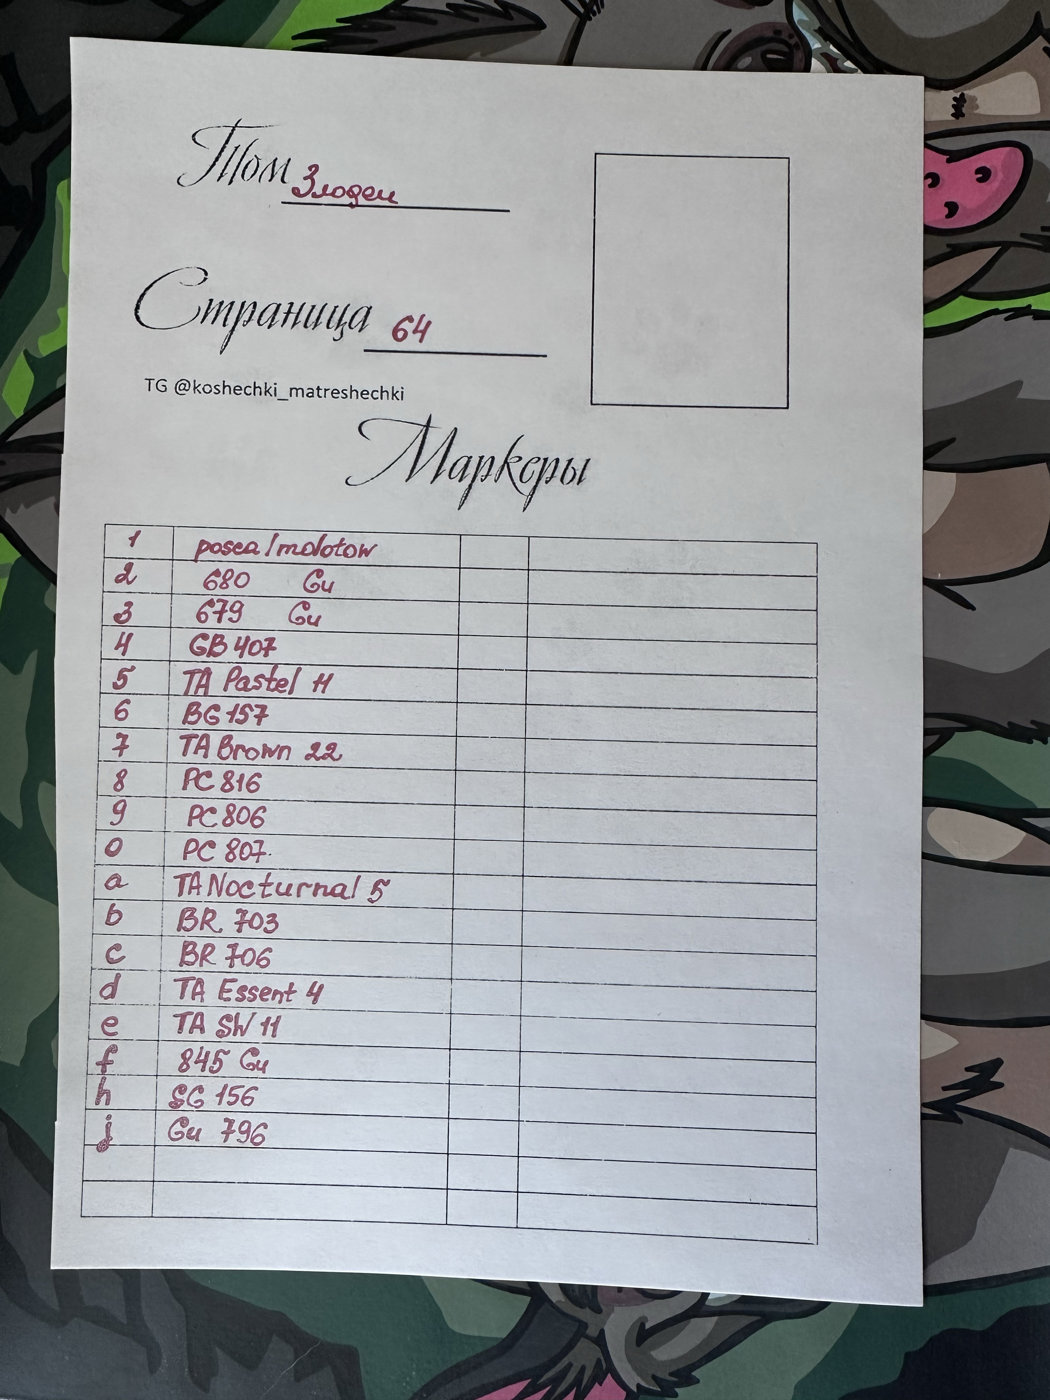 Том Злодеи
Страница 64
TG @koshechki_matreshechki
Маркеры
1 posca/molotow
2 680 Gu
3 679 Gu
4 GB 407
5 TA Pastel 11
6 BG 157
7 TA Brown 22
8 PC 816
9 PC 806
0 PC 807
a TA Nocturnal 5
b BR 703
c BR 706
d TA Essent 4
e TA SW 11
f 845 Gu
h SG 156
j Gu 796